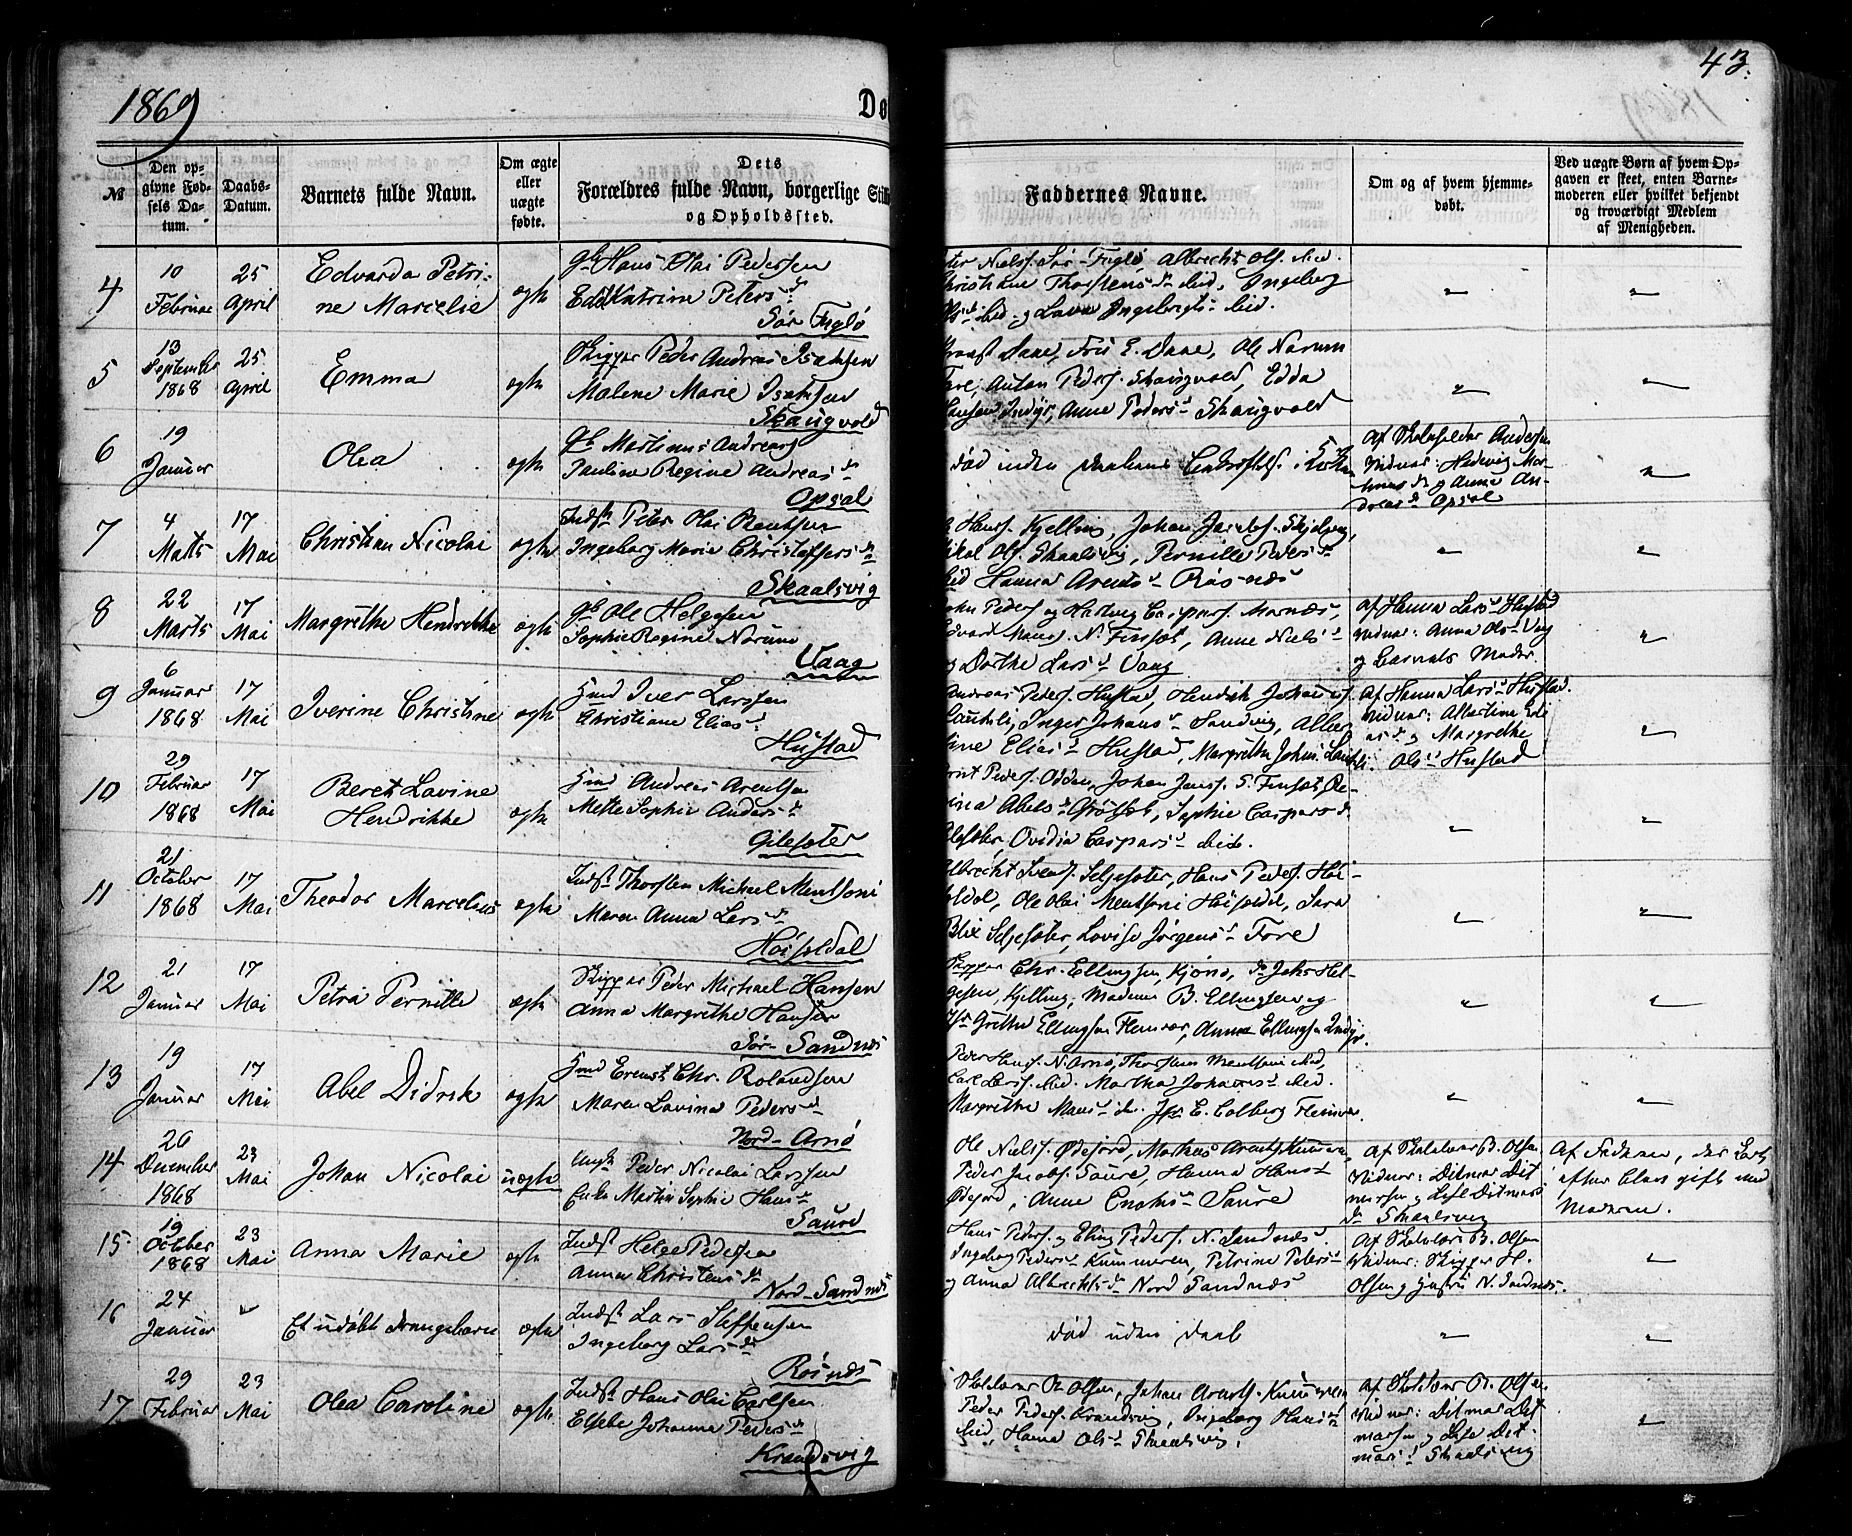 1869
Dø
43.
№
Den op-
givne Fød-
sels Da-
tum.
Daabs-
Datum.
Barnets fulde Navn.
Om ægte
eller
uægte
fødte.
Dets
Forældres fulde Navn, borgerlige Still
og Opholdssted.
Faddernes Navne.
Om og af hvem hjemme-
døbt.
Ved uægte Børn af hvem Op-
gaven er skeet, enten Barne-
moderen eller hvilket bekjendt
og troværdigt Medlem
af Menigheden.
4
10
Februar
25
April
Edvarda Petri-
ne Marcelie
ægte
Hans Olai Pedersen
Katrine Peters
Sør Fuglø
Niels. Sør-Fuglø, Albrecht Ols. ibid.
Thorstens ibid, Ingeborg
ibid. og Lava Ingebrigts ibid.
5
13
September
1868
25
April
Emma
ægte
Skipper Peder Andreas Isaksen
Malene Marie Isaksen
Skaugvold
Ole Narum
Fore, Anton Peders. Skaugvold, Edda
Hansen Indyr, Anne Peders Skaugvold
6
19
Januar
Olea
ægte
Martinus Andreas
Pauline Regine Andreas
Opsal
død inden Daabens i Kirken
Af Skoleholder Andersen
Vidner: Hedevig Mar-
tinus og Anne An-
dreas Opsal
7
4
Marts
17
Mai
Christian Nicolai
ægte
Indst. Peter Olai Bentsen
Ingeborg Marie Christoffers
Skaalsvig
Hans. Kjelling, Johan Jacobs. Skjelvig,
Ols. Skaalsvig, Pernille Peders
ibid Hanna Arents Røsnæs
8
22
Marts
17
Mai
Margrethe Hendrikke
ægte
Ole Helgesen
Sophie Regine Narum
Vaag
John Peders. og Hartvig Caspers. Marnæs,
Edvard Hans. N. Finset, Anne Niels
og Dorthe Lars Vaag
af Hanna Lars Hustad
Vidner: Anna Ols Vaag
og Barnets Moder.
9
6
Januar
1868
17
Mai
Iverine Christine
ægte
Gmd Iver Larssen
Christiane Elias
Hustad
Andreas Peders. Hustad, Hendrik Johannes.
Inger Johans Sandvig, Alber
tine Elias Hustad, Margrethe Johns.
af Hanna Lars Hustad.
Vidner: Albertine Eli
as og Margrethe
Ols Hustad
10
29
Februar
1868
17
Mai
Beret Lavine
Hendrikke
ægte
Gmd Andreas Arentsen
Mette Sophie Anders
Gilesæter
Peders. Odden, Johan Jans. S. Finset, Re-
gina Abels Grøset, Sophie Caspers
Ovidia Caspars ibid.
11
21
October
1868
17
Mai
Theodor Marcelius
ægte
Indst. Thorsten Michael Mentsoni
Maren Anna Lars
Høiseldal
Albrecht Svends. Selsesæter, Hans Peders. Høi-
Ole Olai Mentsoni Høiseldal, Sara
Blix Selsesæter, Lovise Jørgens Fore
12
21
Januar
17
Mai
Petra Pernille
ægte
Skipper Peder Michael Hansen
Anna Margrethe Hansen
Sør-Sandnæs
Skipper Chr. Ellingsen, Kjøns, Johs Hel-
gesen, Kjelling, Madame B. Ellingsen og
Grethe Ellingsen Fleinvær, Anna Ellingsen Indyr.
13
19
Januar
17
Mai
Abel Didrik
ægte
Gmd Ernst Chr. Rolandsen
Maren Lavina Peders
Nord-Arnø
Peder Hans. N. Arnø, Thorsten Mentsoni ibid,
Carl Lars. ibid. Martha Johannes ibid.
Margrethe Hans ibid. E. Colberg Fleinvær
14
26
December
1868
23
Mai
Johan Nicolai
uægte
Ungk. Peder Nicolai Larssen
Enke Martin Sophie Hans
Saure
Ole Niels. Ødefjord, Mathias Arents. Kunnæren,
Peder Jacobs. Saure, Hanna Hans
Ødefjord, Anne Enoks Saure
af Skolelærer B. Olsen
Vidner: Ditmar Dit
marsen og Lise Ditmars
Skaalsvig
Af Faderen, der
efter blev gift med
Moderen.
15
19
October
1868
23
Mai
Anna Marie
ægte
Indst. Helge Pedersen
Anna Christens
Nord-Sandnæs
Hans Peders. og Eling Peders. N. Sandnæs.
Ingeborg Peders Kunnæren, Petrine Peters
og Anna Albrechts Nord Sandnæs
af Skolelærer B. Olsen
Vidner: Skipper H.
Olsen og Hustru N. Sandnæs.
16
24
Januar
Et udøbt Drengebarn
ægte
Indst. Lars Steffensen
Ingeborg Lars
Røsnæs
død uden Daab
17
29
Februar
23
Mai
Olea Caroline
ægte
Indst. Hans Olai Carlsen
Elsebe Johanna Peders
Krandsvig
Skolelærer B. Olsen, Johan Arnolds. Kunnæren
Peder Peders. Krandsvig, Ingeborg Hans
ibid. Hanna Ols Skaalsvig.
af Skolelærer B. Olsen.
Vidner: Ditmar Dit
marsen og Lise Dit-
mars Skaalsvig